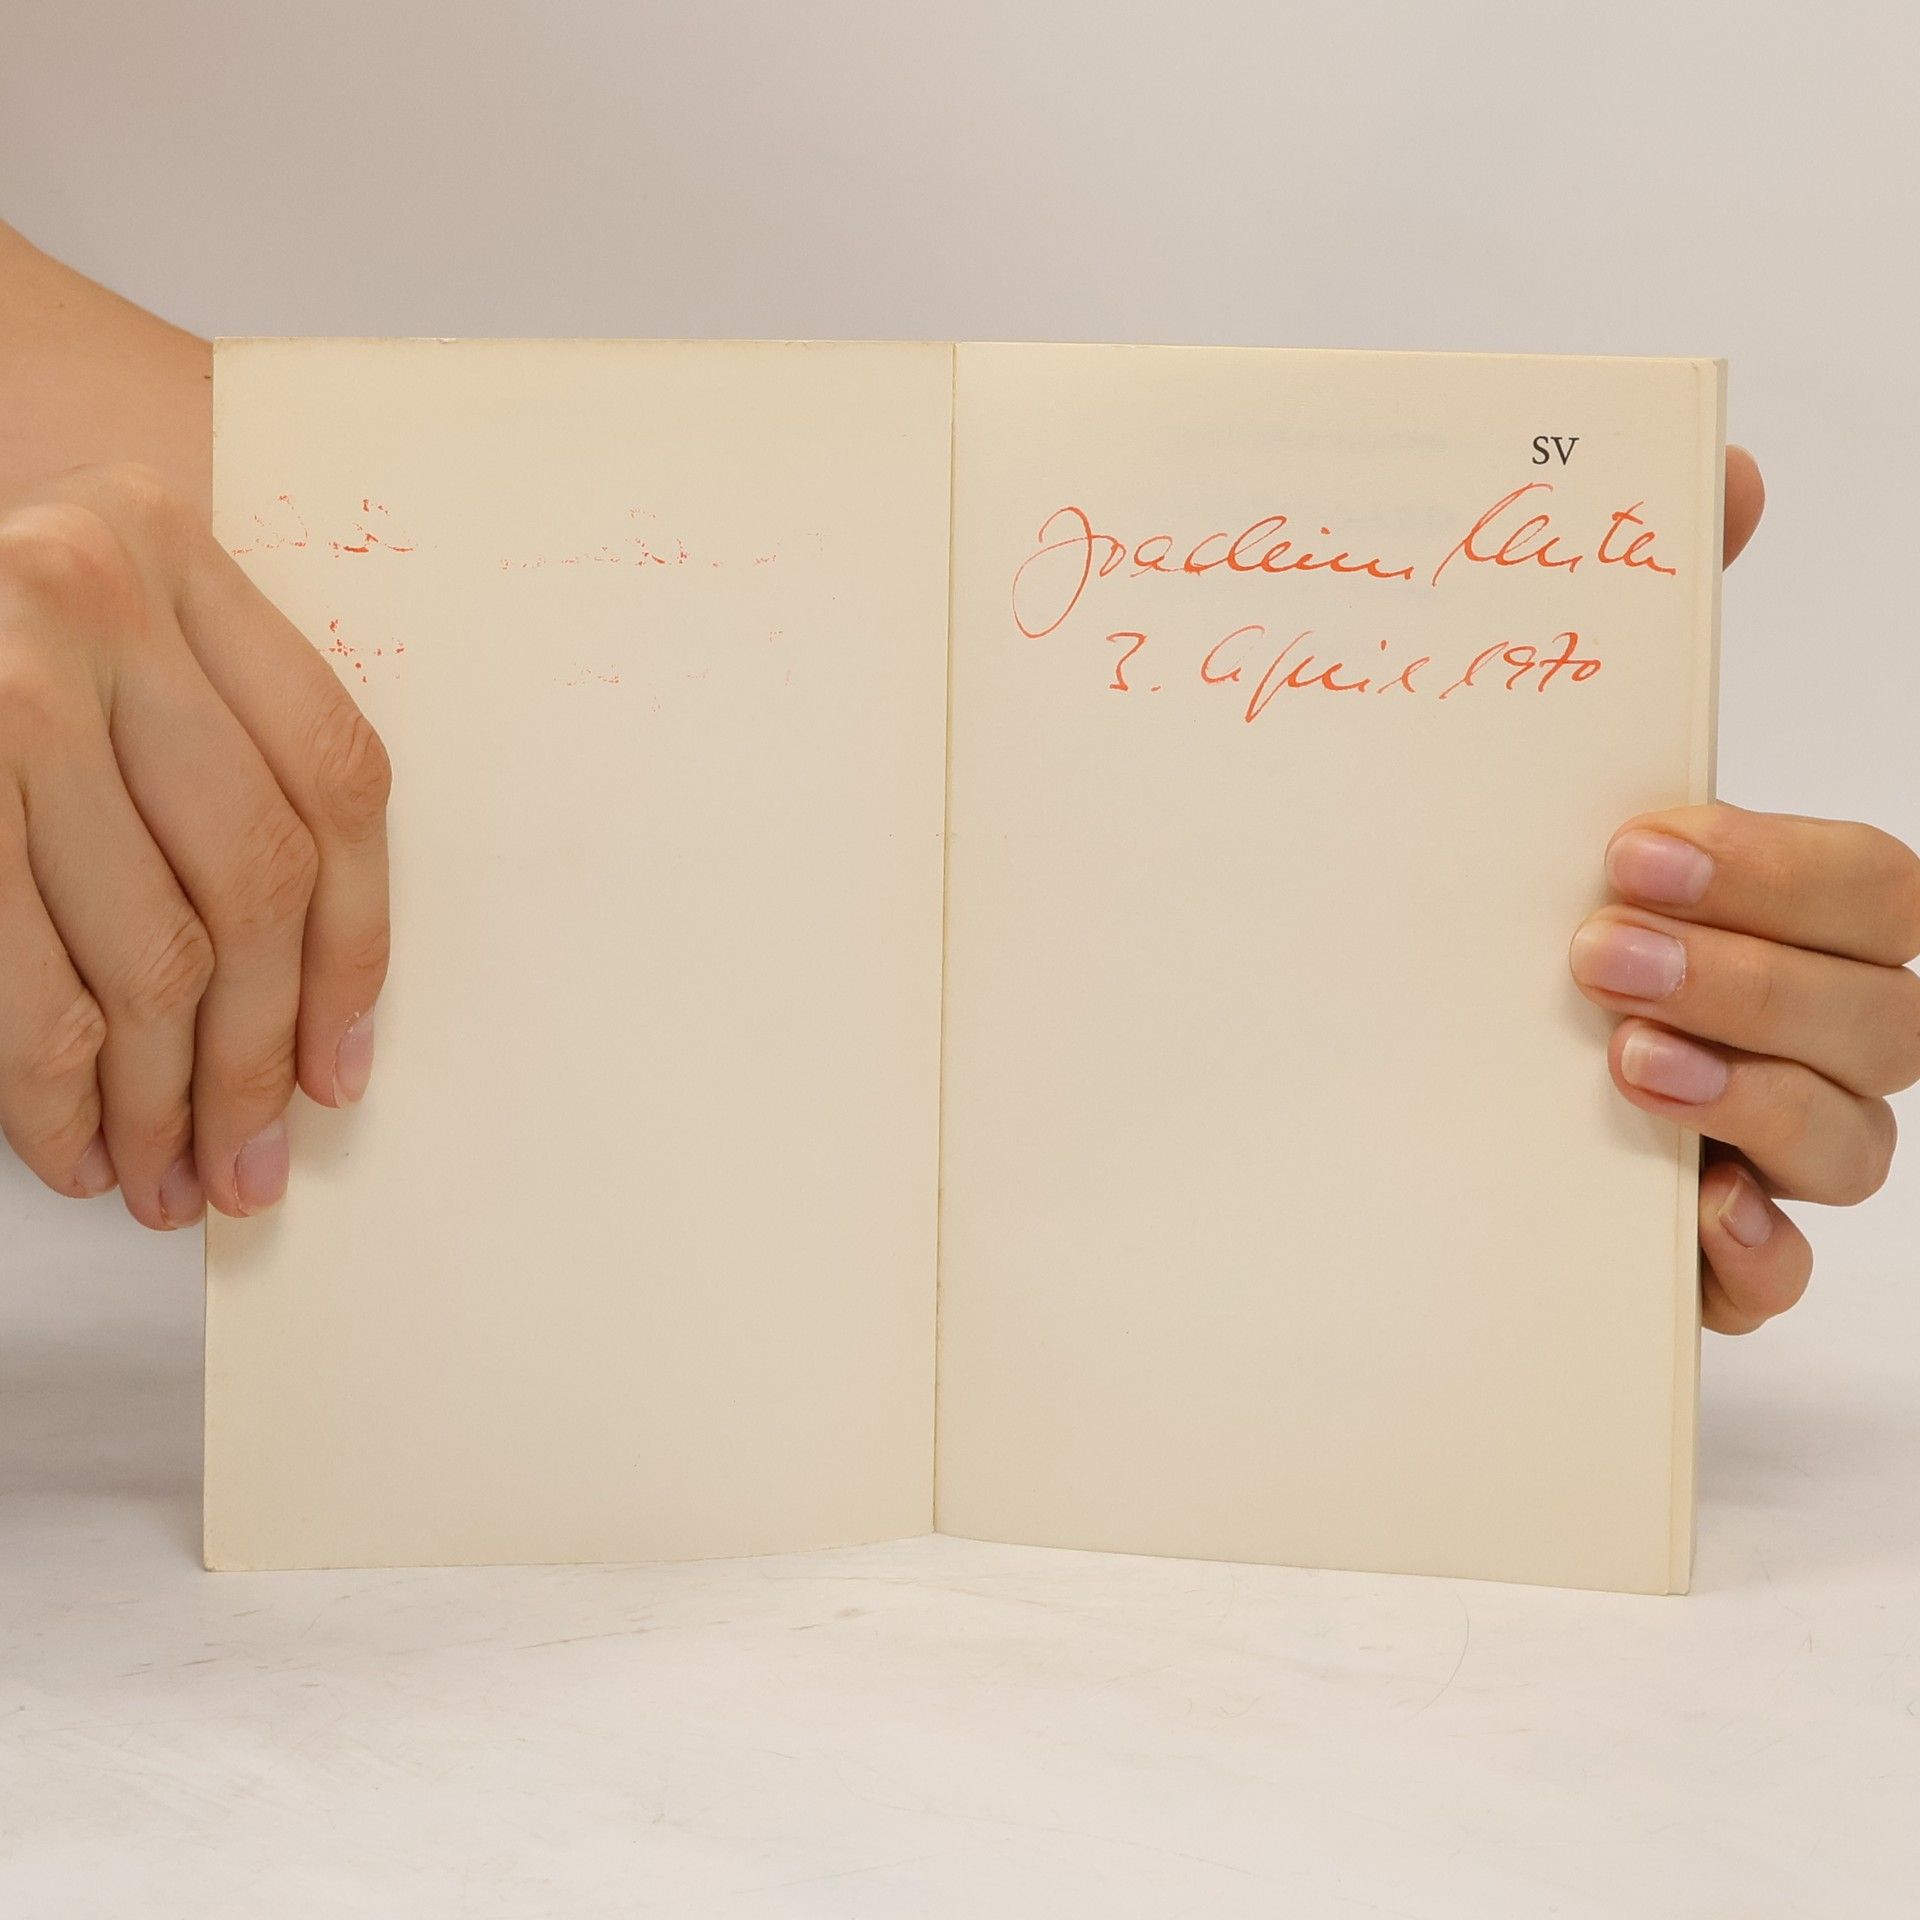 SV
Joachim
3. April 1970